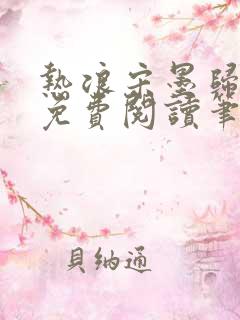 熱浪宋墨歸
免費閱讀筆
貝納通